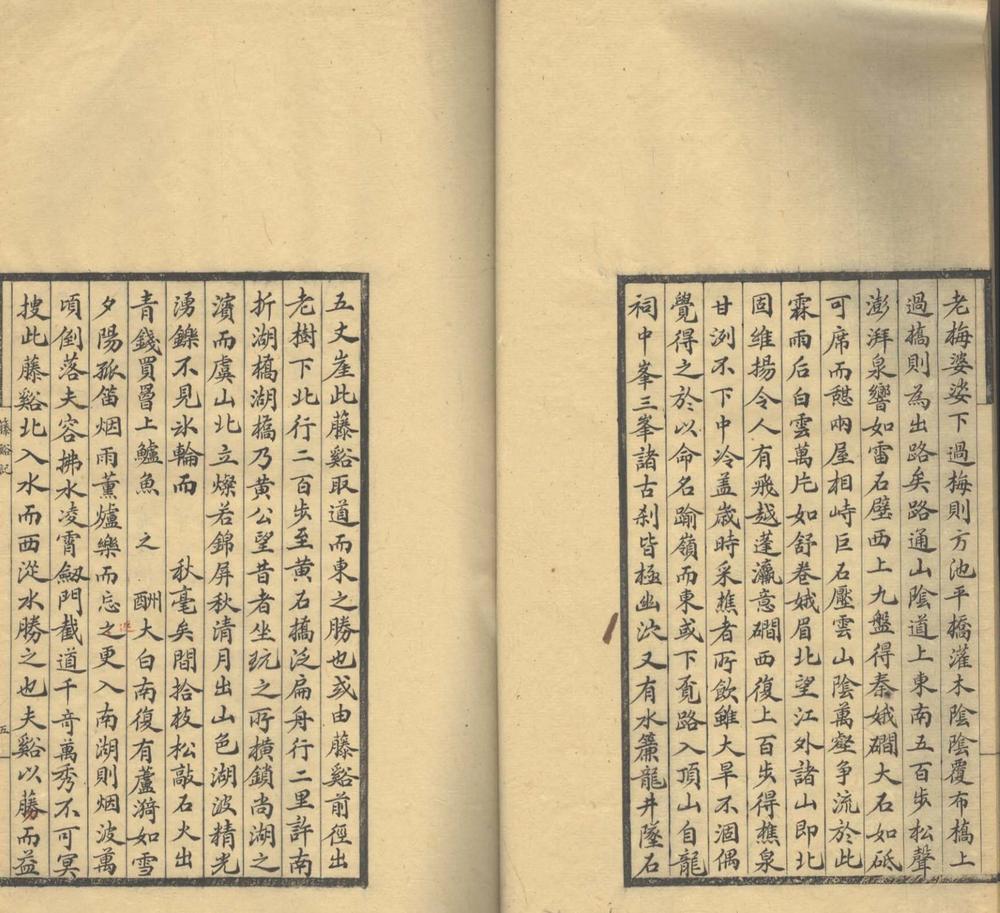 老梅婆娑下過梅則方池平橋灌木陰陰覆布橋上
過橋則為出路矣路通山陰道上東南五百步松聲
澎湃泉響如雷石壁西上九盤得秦娥磵大石如砥
可席而憇兩屋相峙巨石壓雲山陰萬壑争流於此
霖雨后白雲萬片如舒卷娥眉北望江外諸山即北
固維揚令人有飛越蓬瀛意磵西復上百步得樵泉
甘冽不下中泠盖歲時采樵者所飲雖大旱不涸偶
覺得之於以命名踰嶺而東或下覔路入頂山自龍
祠中峯三峯諸古刹皆極幽泬又有水簾龍井墜石
五丈崖此藤谿取道而東之勝也或由藤谿前徑出
老樹下北行二百步至黄石橋泛扁舟行二里許南
折湖橋湖橋乃黄公望昔者坐玩之所横鎖尚湖之
濱而虞山北立燦若錦屏秋清月出山色湖波精光
湧鑠不見氷輪而 秋毫矣間拾枝松敲石火出
青錢買罾上鱸魚 之 酬大白南復有蘆漪如雪
夕陽孤笛烟雨薰爐樂而忘之更入南湖則烟波萬
頃倒落夫容拂水凌霄劔門截道千奇萬秀不可冥
搜此藤谿北入水而西泛水勝之也夫谿以藤而益
藤谿記
五